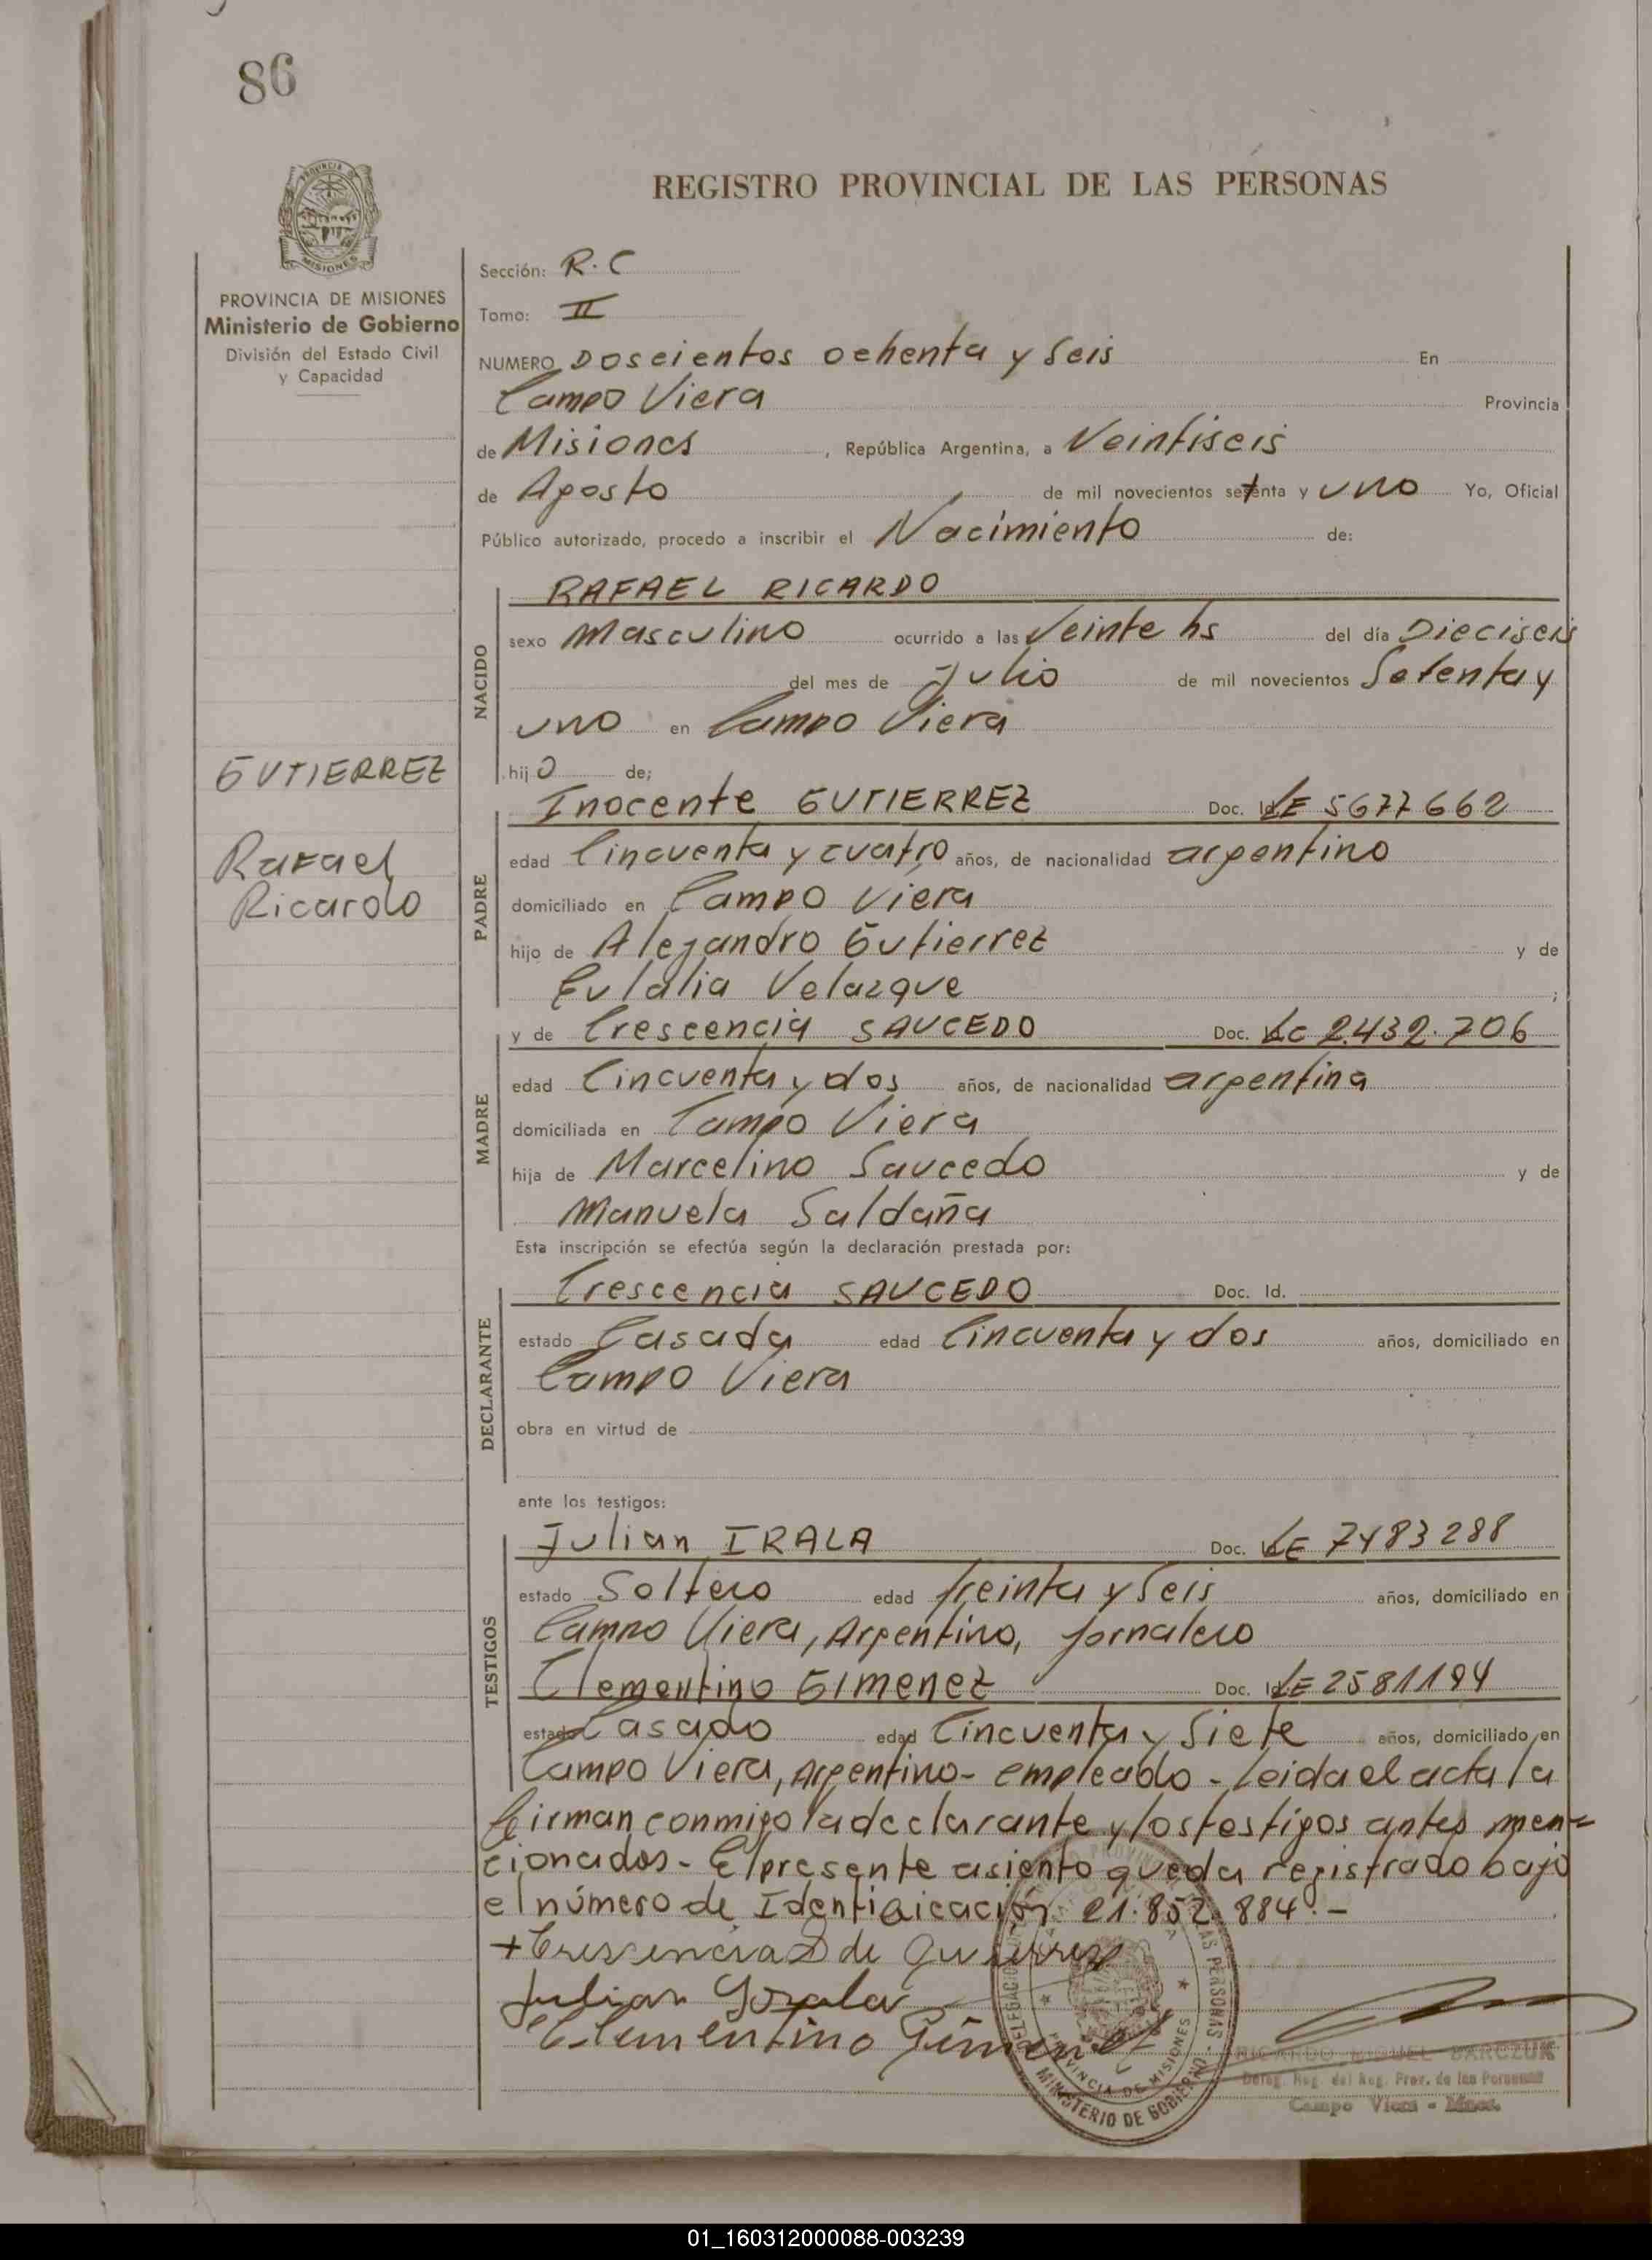 86
PROVINCIA DE
MISIONES
PROVINCIA DE MISIONES
Ministerio de Gobierno
División del Estado Civil
y Capacidad
GUTIERREZ
Rafael
Ricardo
REGISTRO PROVINCIAL DE LAS PERSONAS
Sección: R.C
Tomo: II
NUMERO Doscientos ochenta y Seis En
Campo Viera Provincia
de Misiones, República Argentina, a Veintiseis
de Agosto de mil novecientos setenta y uno Yo, Oficial
Público autorizado, procedo a inscribir el Nacimiento de:
NACIDO
RAFAEL RICARDO
sexo Masculino ocurrido a las Veinte hs del día Dieciseis
del mes de Julio de mil novecientos Setenta y
uno en Campo Viera
hijo de;
PADRE
Inocente GUTIERREZ Doc. Id. LE 5677662
edad Cincuenta y cuatro años, de nacionalidad argentino
domiciliado en Campo Viera
hijo de Alejandro Gutierrez y de
Eulalia Velazque ;
MADRE
y de Crescencia SAUCEDO Doc. Id. LC 2.432.706
edad Cincuenta y dos años, de nacionalidad argentina
domiciliada en Campo Viera
hija de Marcelino Saucedo y de
Manuela Saldaña
Esta inscripción se efectúa según la declaración prestada por:
DECLARANTE
Crescencia SAUCEDO Doc. Id.
estado Casada edad Cincuenta y dos años, domiciliado en
Campo Viera
obra en virtud de
ante los testigos:
TESTIGOS
Julian IRALA Doc. Id. LE 7483288
estado Soltero edad treinta y Seis años, domiciliado en
Campo Viera, Argentino, jornalero
Clementino GIMENEZ Doc. Id. LE 2581194
estado Casado edad Cincuenta y Siete años, domiciliado en
Campo Viera, Argentino - empleado - Leida el acta la
firman conmigo la declarante y los testigos antes men-
cionados - El presente asiento queda registrado bajo
el número de Identificación 21.852.884.-
+Crescencia S de Gutierrez
Julian Yrala
Clementino Gimenez
PROVINCIA DE MISIONES
MINISTERIO DE GOBIERNO
RICARDO MIGUEL BARCZUK
Deleg. Reg. del Reg. Prov. de las Personas
Campo Viera - Mnes.
01_160312000088-003239